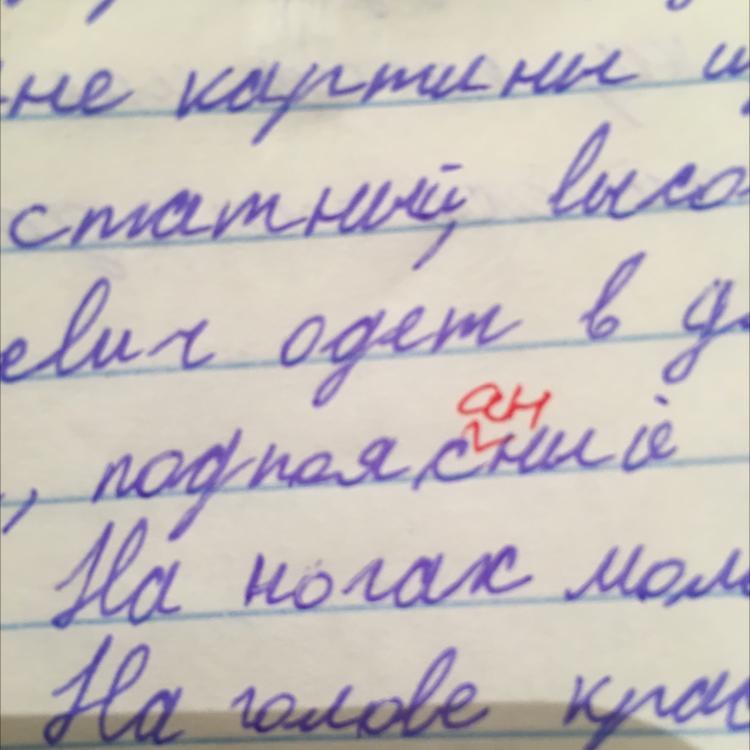 не картины
статный, высо
евич одет в
ан
, подпоясный
На ногах мол
На голове крас